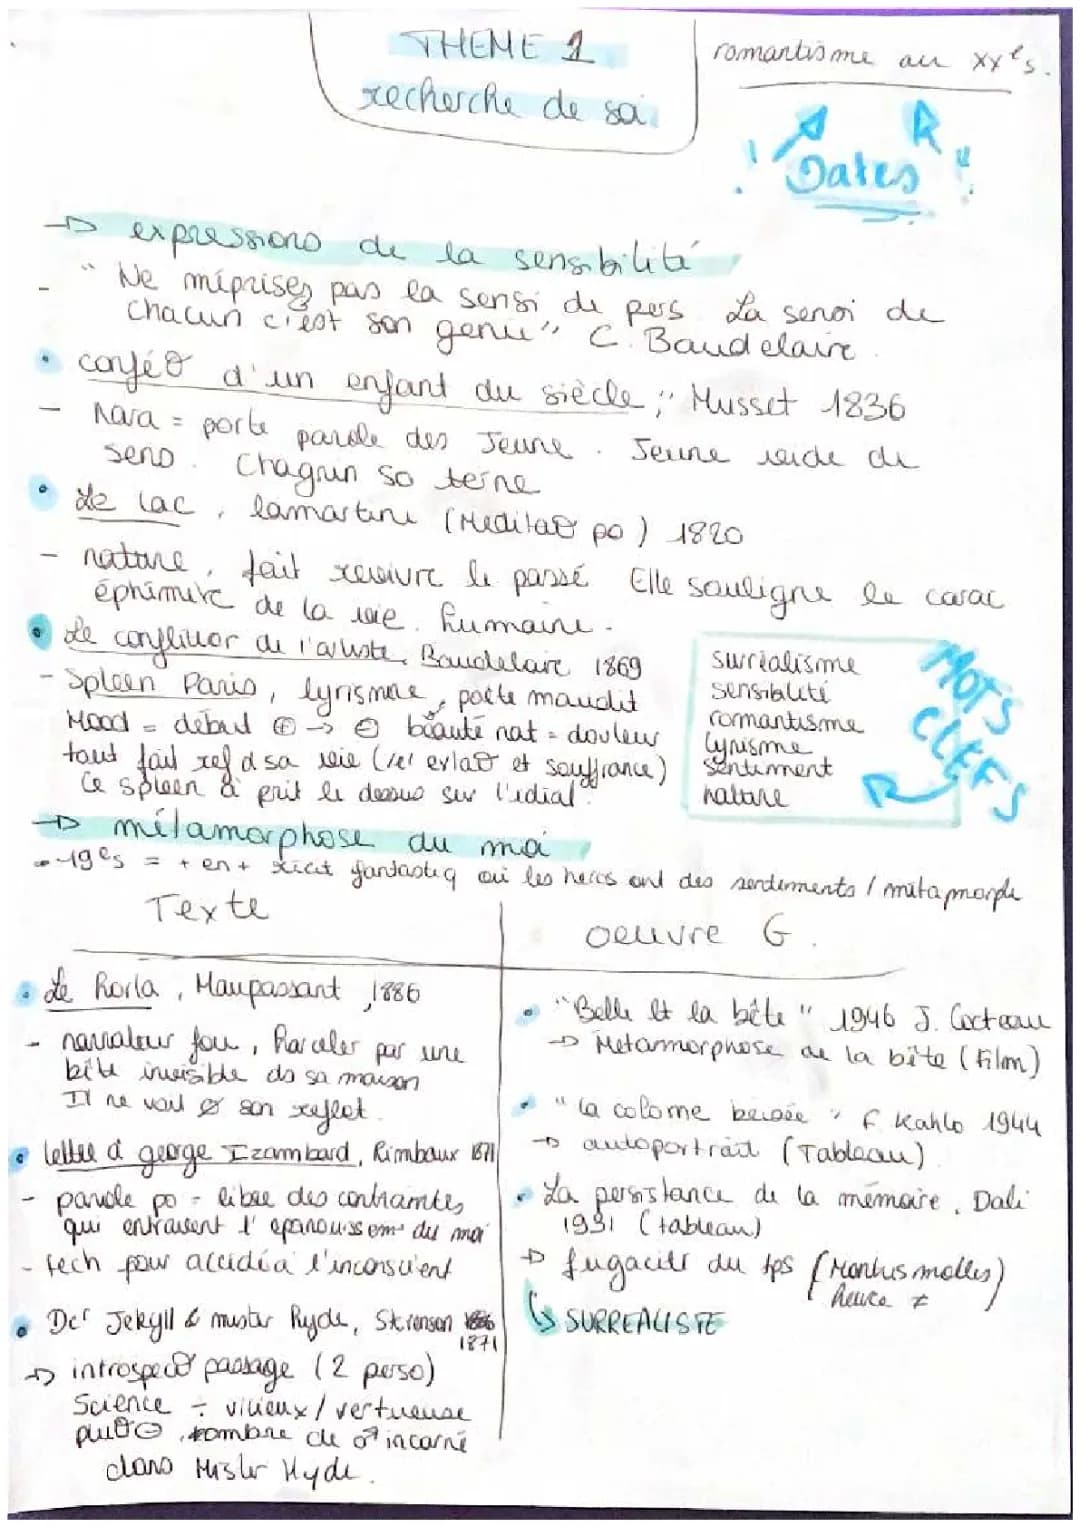 THEME 1
recherche de soi
romantisme au XXe s.
! Dates !
→ expressions de la sensibilité
- " Ne méprisez pas la sensi de pers. La sensi de
chacun c'est son genie", C. Baudelaire.
• conféo d'un enfant du siècle, Musset 1836
- Nara = porte parole des Jeune. Jeune vide de
sens. Chagrin so terne
• Le lac, lamartine (Meditao po) 1820
- nature, fait revivre le passé Elle souligne le carac
éphémère de la vie humaine.
• Le confitior de l'artiste, Baudelaire 1869
- Spleen Paris, lyrisme, poète maudit
Mood = début ⊕ → ⊖ beauté nat = douleur
tout fait ref d sa vie
et souffrance)
Ce spleen à prit le dessus sur l'idial.
surréalisme
sensiblité
romantisme
lyrisme
sentiment
nature
MOTS
CLEFS
→ métamorphose du moi
- 19es = + en + récit fantastiq où les héros ont des sentiments / métamorph
Texte
oeuvre G.
• Le Horla, Maupassant, 1886
- narrateur fou, harceler par une
bête invisible ds sa maison
Il ne voit ø son reflet.
• lettre à george Izambard, Rimbaux 1871
- parole po = libre des contraintes,
qui entravent l'epanouissemt du moi
- tech pour accéder à l'inconscient
• Dcr Jekyll & mister Hyde, Stevenson 1886
1871
→ introspeco passage (2 perso)
Science ÷ vicieux / vertueuse
sombre de incarné
dans Mister Hyde.
• "Belle et la bête" 1946 J. Cocteau
→ Métamorphose de la bête (film)
• "la colonne brisée", F. Kahlo 1944
→ autoportrait (Tableau)
• La persistance de la mémoire, Dali
1931 (tableau)
→ fugacité du tps (Montres molles)
heure ≠
↳ SURREALISTE